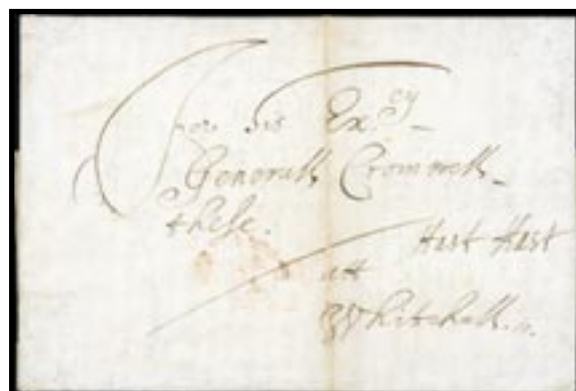 For his Ex:cy
Generall Cromwell
these.
Hast Hast
att
Whitehall